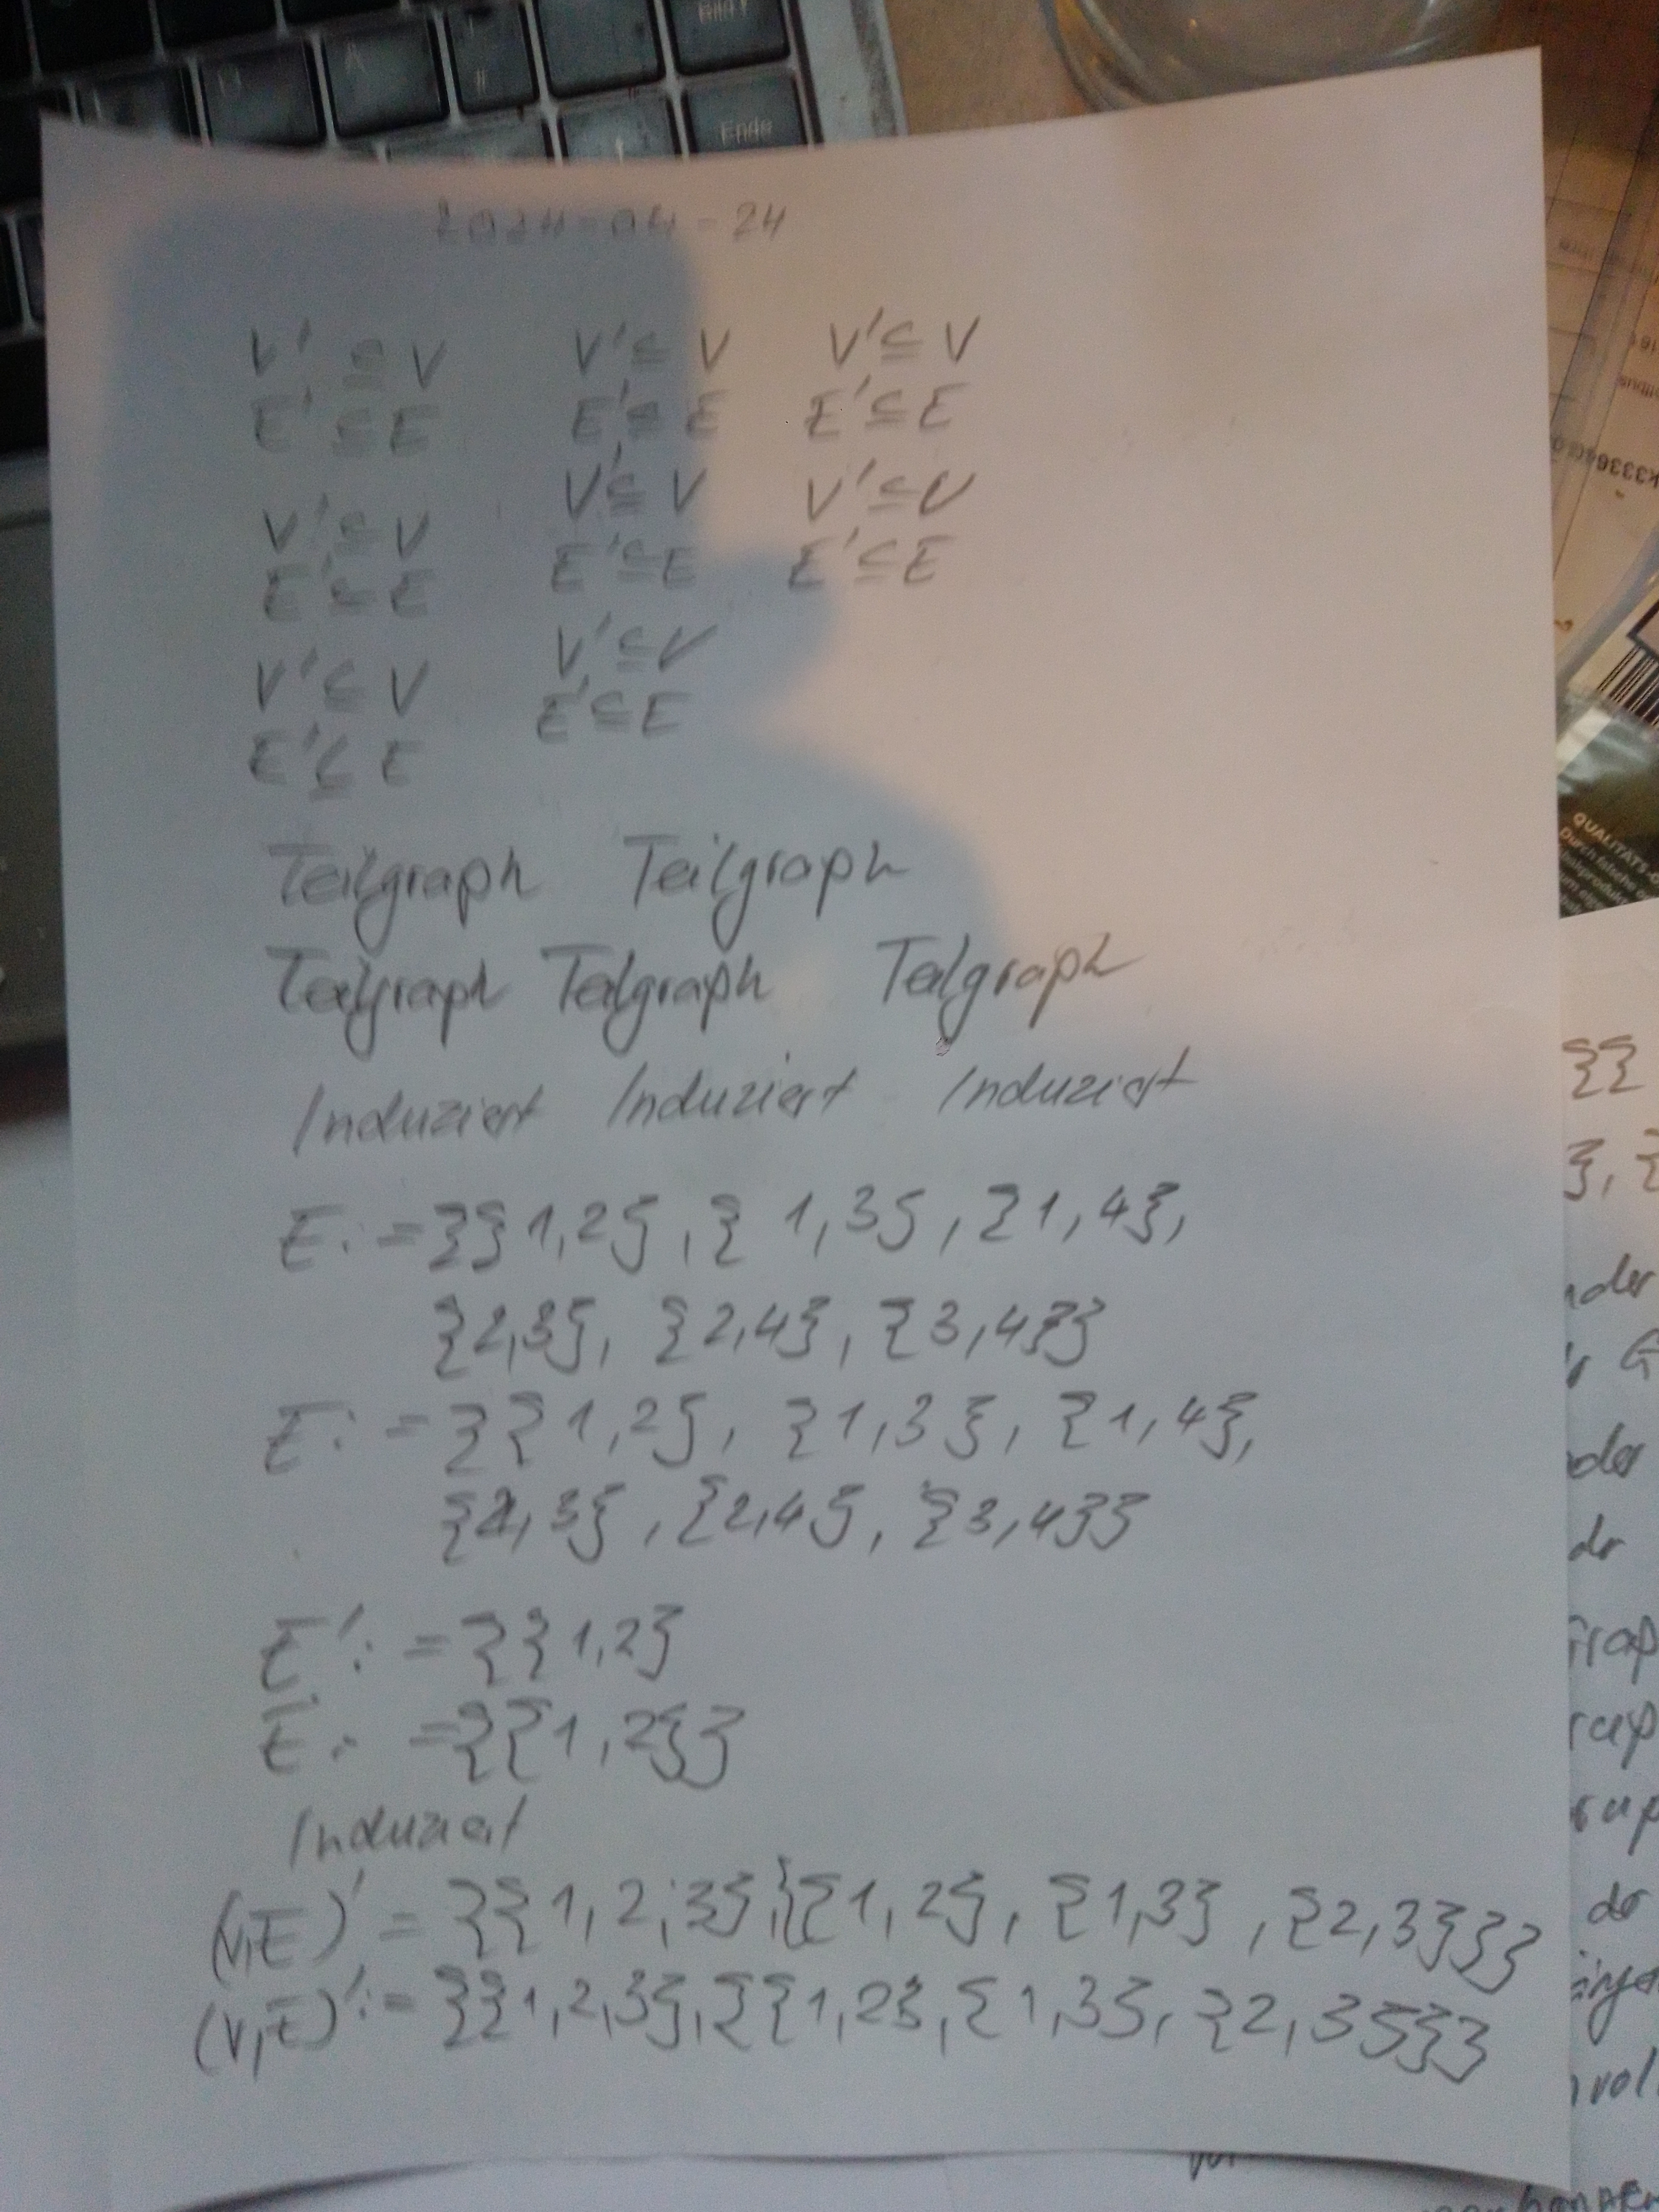 Bild↑
A
#
Ende
2024-04-24
V' ⊆ V V' ⊆ V V' ⊆ V
E' ⊆ E E' ⊆ E E' ⊆ E
V' ⊆ V V' ⊆ V V' ⊆ V
E' ⊆ E E' ⊆ E E' ⊆ E
V' ⊆ V V' ⊆ V
E' ⊆ E E' ⊆ E
Teilgraph Teilgraph
Teilgraph Teilgraph Teilgraph
Induziert Induziert Induziert
E := {{1,2}, {1,3}, {1,4},
{2,3}, {2,4}, {3,4}}
E := {{1,2}, {1,3}, {1,4},
{2,3}, {2,4}, {3,4}}
E' := {{1,2}
E' := {{1,2}}
Induziert
(V,E)' = {{1,2,3},{{1,2}, {1,3}, {2,3}}}
(V,E)' := {{1,2,3},{{1,2}, {1,3}, {2,3}}}
QUALITÄTS-